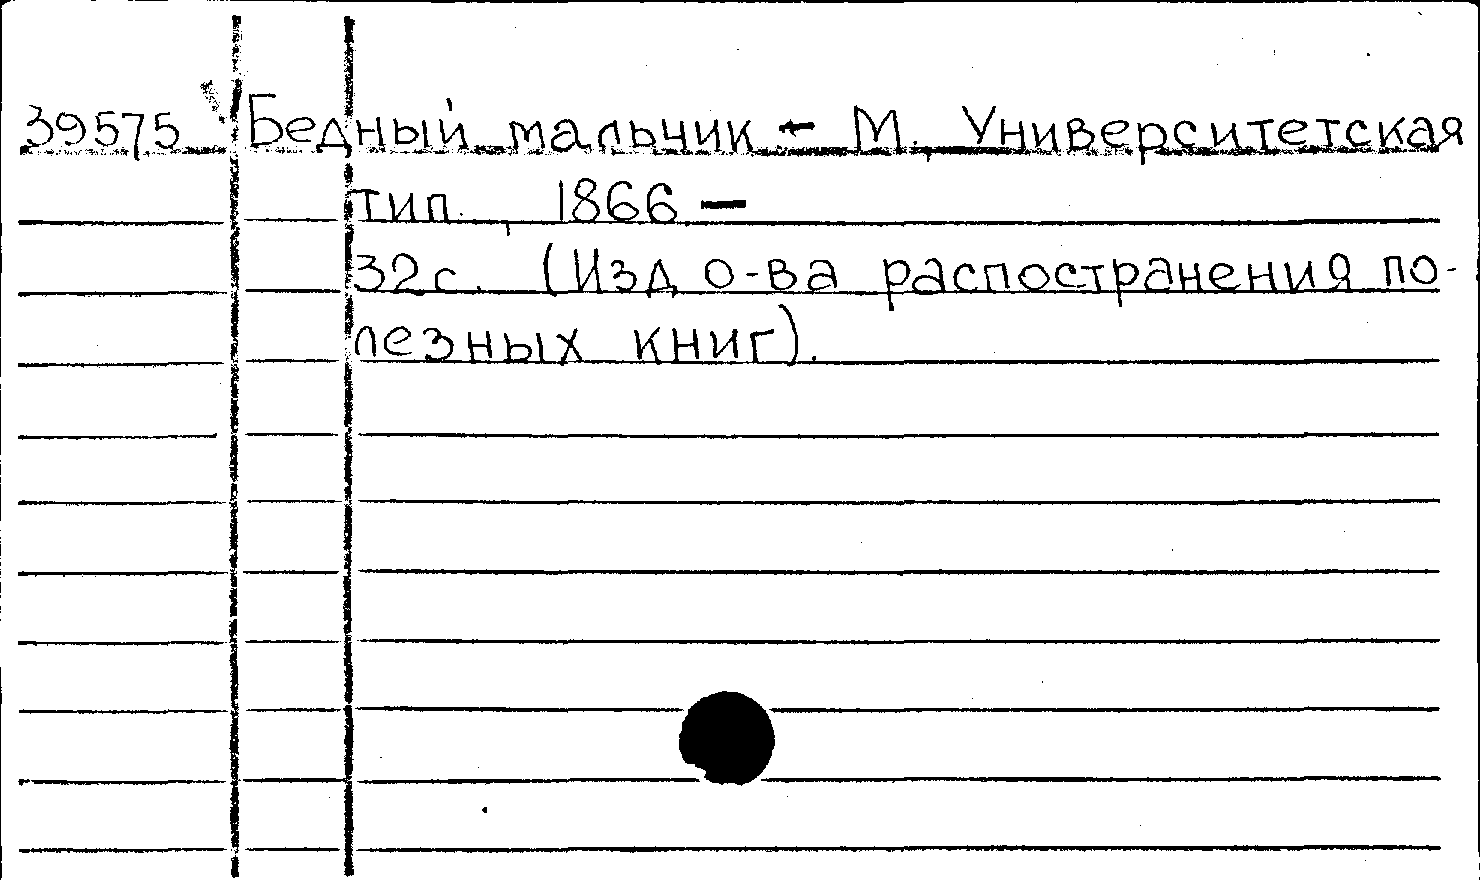 39575 Бедный мальчик - М., Университетская
тип., 1866 -
32с. (Изд о-ва распостранения по-
лезных книг).